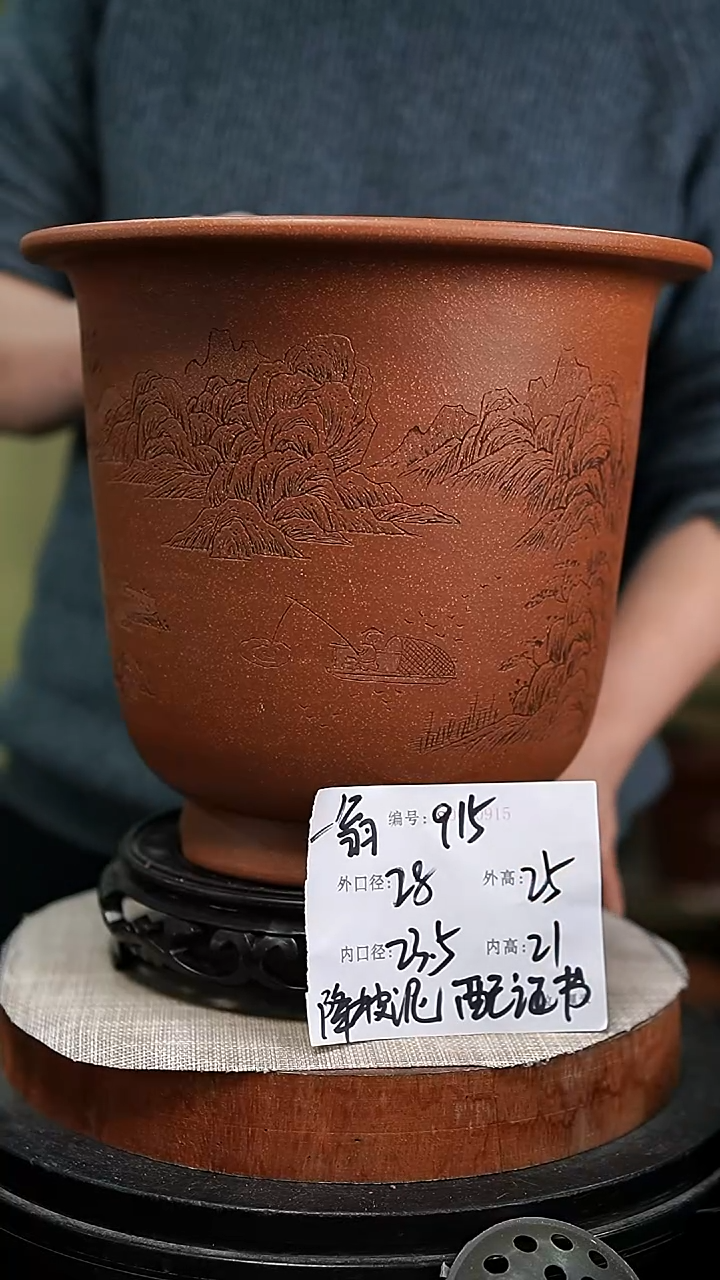 一翁 编号:915
外口径:28 外高:25
内口径:23.5 内高:21
降坡泥 配证书